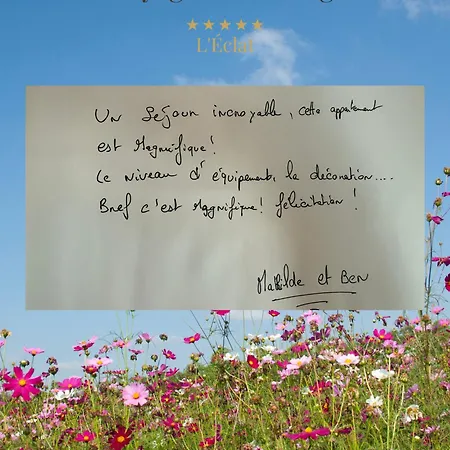 L'Éclat
Un séjour incroyable, cette appartement
est Magnifique!
Le niveau d'équipements, la décoration....
Bref c'est Magnifique! félicitation!
Mathilde et Ben